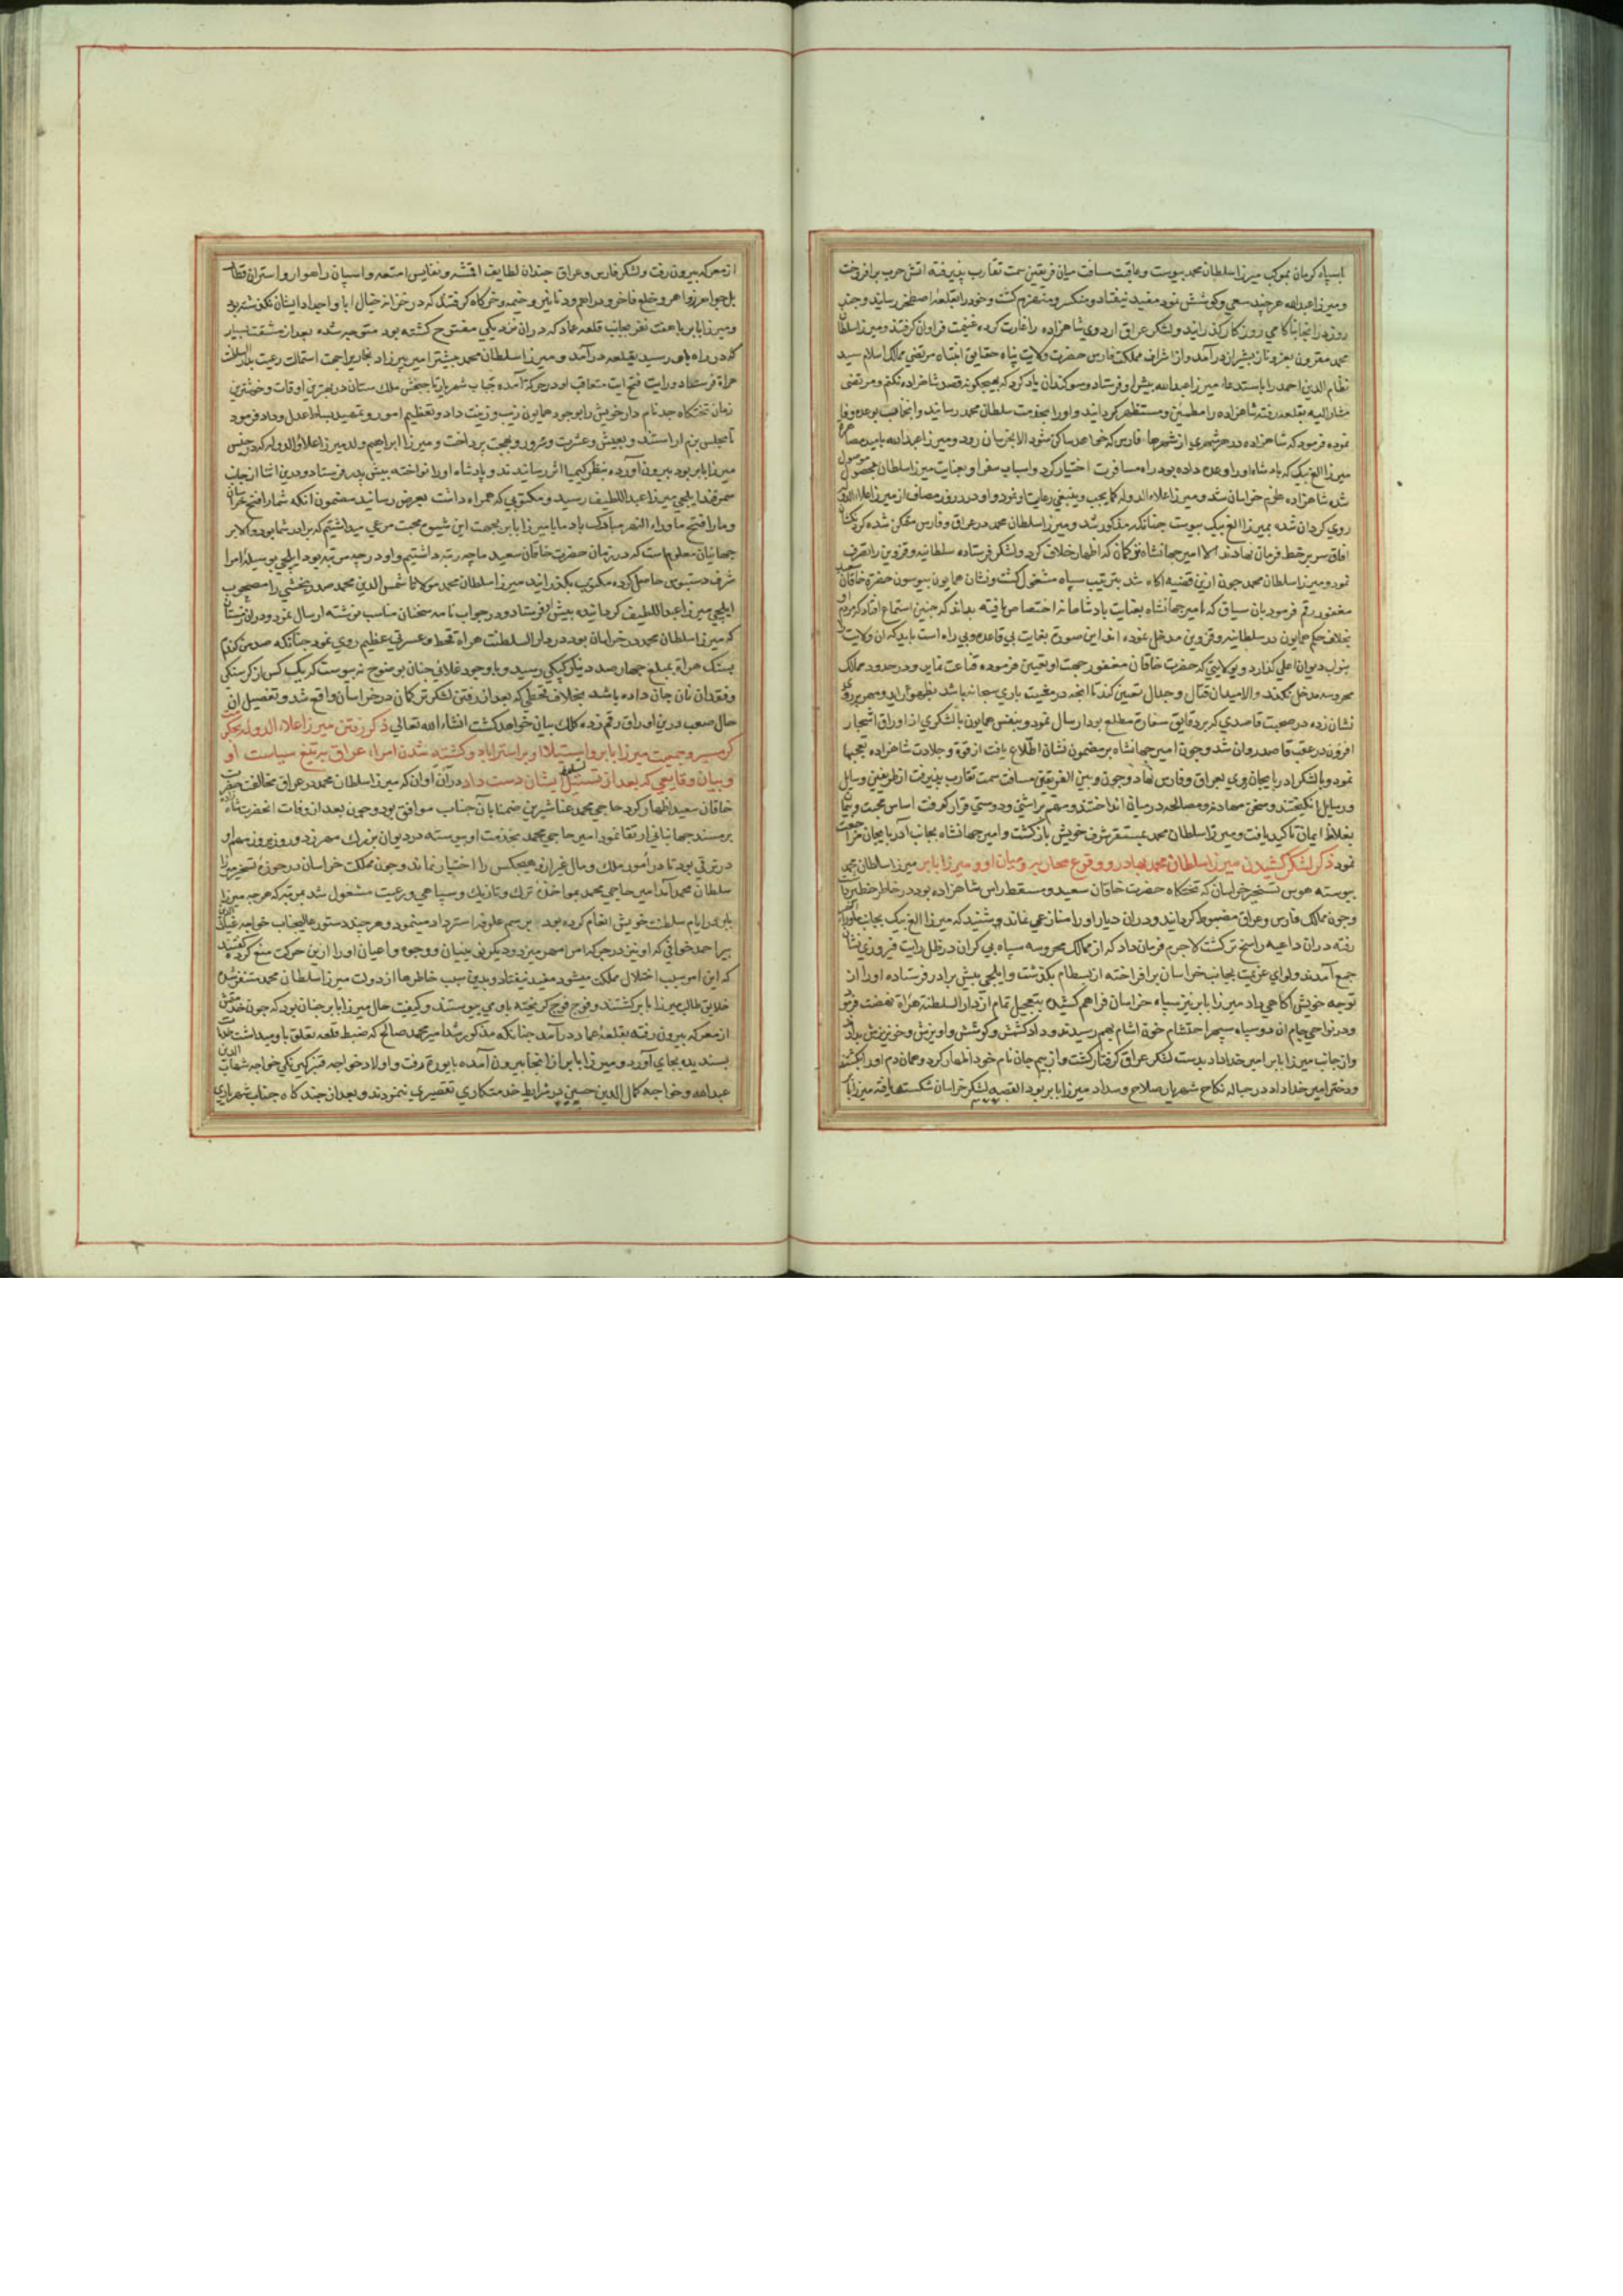 با سپاه کرمان بموکب میرزا سلطان محمد پیوست و عاقبت مسافت میان فریقین سمت تقارب پذیرفته آتش حرب برافروخت
و میرزا عبدالله هر چند سعی و کوشش نمود مفید نیفتاد و منکسر و منهزم کشت و خود را بقلعه اصطخر رسانید و چند
روز در انجا بناکامی روزکار کذرانید و لشکر عراق اردوی شاهزاده را غارت کرده غنیمت فراوان کرفتند و میرزا سلطان
محمد مقرون بعز و ناز بشیراز در آمد و از اشراف مملکت فارس حضرت ولایت پناه حقایق انتباه مرتضی ممالک اسلام سید
نظام الدین احمد را باستدعاء میرزا عبدالله پیش او فرستاد و سوکندان یاد کرد که بهیچکونه قصد شاهزاده نکنم و مرتضی
مشار الیه بقلعه رفته شاهزاده را مطمئن و مستظهر کردانید و او را بخدمت سلطان محمد رسانید و انجناب بوعده وفا
نموده فرمود که شاهزاده در هر شهری از شهرهاء فارس که خواهد ساکن شود الا بخراسان رود و میرزا عبدالله بامید مصاهره
میرزا الغ بیک که پادشاه او را وعده داده بود راه مسافرت اختیار کرد و اسباب سفر او بعنایت میرزا سلطان محمد بحصول موصول
شده شاهزاده عازم خراسان شد و میرزا علاء الدوله کما یجب و ینبغی رعایت او نمود و او در روز مصاف از میرزا علاء الدوله
روی کردان شده بمیرزا الغ بیک پیوست چنانکه مذکور شد و میرزا سلطان محمد در عراق و فارس متمکن شده کردنکشان
افاق سر بر خط فرمان نهادند الا امیر جهانشاه ترکمان که اظهار خلاف کرد و لشکر فرستاده سلطانیه و قزوین را تصرف
نمود و میرزا سلطان محمد چون ازین قضیه آکاه شد بترتیب سپاه مشغول کشت و نشان همایون بیوسون حضرة خاقان سعید
مغفور رقم فرمود بان سیاق که امیر جهانشاه بعنایت پادشاهانه اختصاص یافته بداند که چنین استماع افتاد که مردم او
بخلاف حکم همایون در سلطانیه و قزوین مدخل نموده اند این صورة بغایت بی قاعده و بی راه است باید که ان ولایت را
بنواب دیوان اعلی کذارد و بولایتی که حضرت خاقان مغفور جهت او تعیین فرموده قناعت نماید و در حدود ممالک
محروسه مدخل نکند و الا میدان قتال و جدال تعیین کند تا انچه در مغیبت باری سبحانه باشد بظهور آید و مهر بر روی
نشان زده در صحبت قاصدی که بر دقایق سفارة مطلع بود ارسال نمود و بنفس همایون با لشکری از اوراق اشجار
افزون در عقب قاصد روان شد و چون امیر جهانشاه بر مضمون نشان اطلاع یافت از قوة و جلادت شاهزاده تعجبها
نمود و با لشکر اذربایجان روی بعراق و فارس نهاد و چون و بین الفریقین مسافت سمت تقارب پذیرفت از طرفین وسایل
و رسایل انکیختند و سخن مهادنه و مصالحه در میان انداختند و مهم بر آشتی و دوستی قرار کرفت اساس محبت و
بغلاظ ایمان تاکید یافت و میرزا سلطان محمد بمستقر شرف خویش بازکشت و امیر جهانشاه بجانب آذربایجان مراجعت
نمود ذکر لشکر کشیدن میرزا سلطان محمد بهادر و وقوع محاربه میان او و میرزا بابر میرزا سلطان محمد
پیوسته هوس تسخیر خراسان که تختکاه حضرت خاقان سعید و مسقط راس شاهزاده بود در خاطر خطیر داشت
و چون ممالک فارس و عراق مضبوط کردانید و دران دیار او را منازعی نماند و شنید که میرزا الغ بیک بجانب ماوراء النهر
رفته دران داعیه راسخ تر کشت لاجرم فرمان داد که از ممالک محروسه سپاه بی کران در ظل رایت فیروزی نشان
جمع آمدند و لوای عزیمت بجانب خراسان برافراخته از بسطام بکذشت و ایلچی پیش برادر فرستاده او را از
توجه خویش آکاهی داد میرزا بابر نیز سپاه خراسان فراهم کشیده بتعجیل تمام از دار السلطنة هراة نهضت فرمود
و در نواحی جام ان دو سپاه سپهر احتشام خون آشام بهم رسیدند و داد کشش و کوشش و اویزش و خونریزش بداد
و از جانب میرزا بابر امیر خداداد بدست لشکر عراق کرفتار کشت و از بیم جان نام خود اظهار کرد و همان دم او را بکشتند
و دختر امیر خداداد در حباله نکاح شهریار صلاح و سداد میرزا بابر بود القصه لشکر خراسان شکست یافته میرزا بابر
از معرکه بیرون رفت و لشکر فارس و عراق چندان لطایف اقمشه و نفایس امتعه و اسپان راهوار و استران قطار
بل جواهر زواهر و خلع فاخر و دراهم و دنانیر و خیمه و خرکاه کرفتند که در خزانه خیال ابا و اجداد ایشان نکذشته بود
و میرزا بابر با هفت نفر بجانب قلعه عماد که دران نزدیکی مفتوح کشته بود متوجه شده بعد از مشقت بسیار
که در راه باو رسید بقلعه در آمد و میرزا سلطان محمد پیشتر امیر پیرزاد بخاری را جهت استمالت رعیت بدار السلطنت
هراة فرستاد و رایت فتح ایت متعاقب او در حرکة آمده جناب شهریار با جنبش ملک ستان در بهترین اوقات و خوشترین
زمان تختکاه جد نام دار خویش را بوجود همایون زیب و زینت داد و تعظیم امور و تمهید بساط عدل و داد فرمود
تا مجلس بزم اراستند و بعیش و عشرت و سرور و بهجت پرداخت و میرزا ابراهیم ولد میرزا علاء الدوله که در حبس
میرزا بابر بود بیرون آورده بنظر کیمیا اثر رسانیدند و پادشاه او را نواخته پیش پدر فرستاد و درین اثنا از جانب
سمرقند ایلچی میرزا عبداللطیف رسید و مکتوبی که همراه داشت بعرض رسانید مضمون انکه شما را فتح خراسان
و ما را فتح ماوراء النهر مبارک باد ما با میرزا بابر بجهت این شیوع محبت مرعی میداشتیم که برادر شما بود و الا بر
جهانیان معلوم است که در زمان حضرت خاقان سعید ما چه رتبه داشتیم و او در چه مرتبه بود ایلچی بوسیله امرا
شرف دستبوس حاصل کرده مکتوب بکذرانید میرزا سلطان محمد مولانا شمس الدین محمد صدر بخشی را مصحوب
ایلچی میرزا عبداللطیف کردانیده پیش او فرستاد و در جواب نامه سخنان مناسب نوشته ارسال نمود و دران زمستان
که میرزا سلطان محمد در خراسان بود در دار السلطنت هراة قحط و عسرتی عظیم روی نمود چنانکه صد من کندم
بسنک هراة بمبلغ چهارصد دینار کپکی رسید و با وجود غلائی چنان بوضوح نپیوست که یک کس از کرسنکی
و فقدان نان جان داده باشد بخلاف قحطی که بعد از رفتن لشکر ترکمان در خراسان واقع شد و تفصیل ان
حال صعب درین اوراق رقم زده کلک بیان خواهد کشت انشاء الله تعالی ذکر رفتن میرزا علاء الدوله بجانب
کرمسیر و جمعیت میرزا بابر و استیلاء او بر استراباد و کشته شدن امراء عراق بر تیغ سیاست او
و بیان وقایعی که بعد از تسلط ایشان دست داد دران اوان که میرزا سلطان محمد در عراق مخالفت حضرت
خاقان سعید اظهار کرد حاجی محمد عناشیرین ضمنا با آن جناب موافق بود و چون بعد از وفات انحضرت شاهزاده
بر مسند جهانبانی ارتقا نمود امیر حاجی محمد بخدمت او پیوسته در دیوان بزرک مهر زد و روز بروز مهم او
در ترقی بود تا در امور ملک و مال غیر از و هیچکس را اختیار نماند و چون مملکت خراسان در حوزه تسخیر میرزا
سلطان محمد آمد امیر حاجی محمد بمواخذه ترک و تازیک و سپاهی و رعیت مشغول شد بمرتبه که هر چه میرزا
بابر در ایام سلطنت خویش انعام کرده بود برسم علوفه استرداد مینمود و هر چند دستور عالیجناب خواجه غیاث الدین
پیر احمد خوافی که او نیز در جرکه امرا مهر میزد و دیکر نویینان و وجوه و اعیان او را ازین حرکت منع کرده کفتند
که این امر سبب اختلال مملکت میشود مفید نیفتاد و بدین سبب خاطرها از دولت میرزا سلطان محمد متنفر شده
خلایق طالب میرزا بابر کشتند و فوج فوج کریخته باو می پیوستند و کیفیت حال میرزا بابر چنان بود که چون
از معرکه بیرون رفته بقلعه عماد در آمد چنانکه مذکور شد امیر محمد صالح که ضبط قلعه بتعلق باو میداشت خدمات
پسندیده بجای آورد و میرزا بابر از انجا بیرون آمده بابیورد رفت و اولاد خواجه قنبر کهین یکی خواجه شهاب الدین
عبدالله و خواجه کمال الدین حسین در شرایط خدمتکاری تقصیری ننمودند و بعد از چند کاه جناب شهریاری